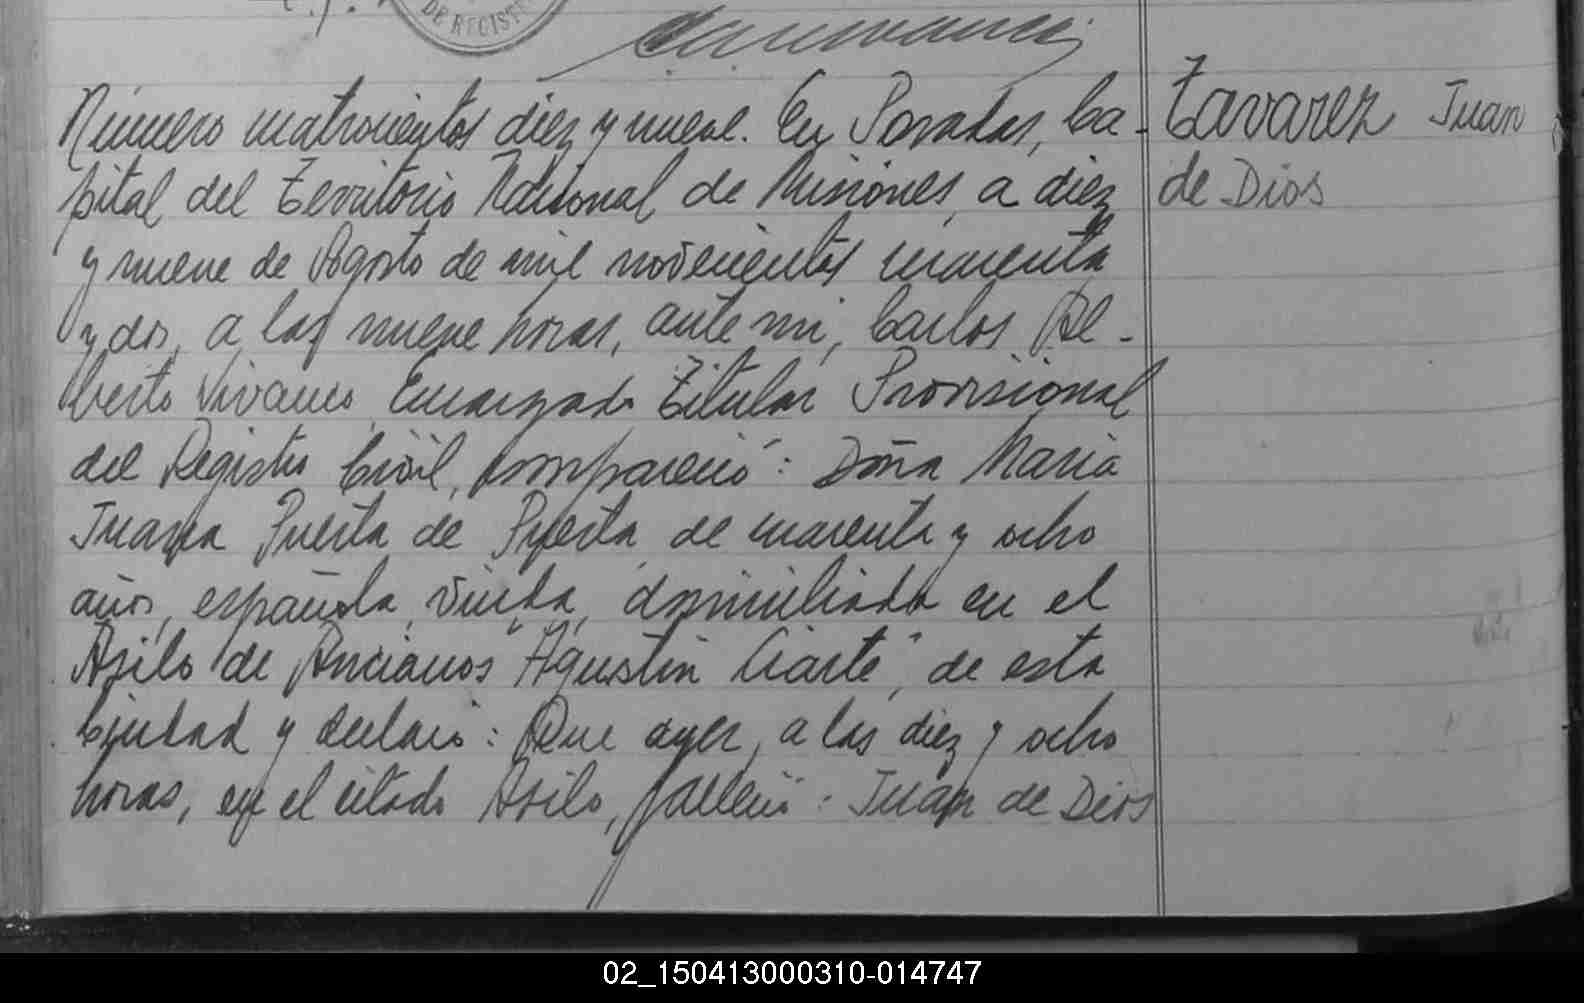 DE REGISTR
Número cuatrocientos diez y nueve. En Posadas, Ca-
pital del Territorio Nacional de Misiones, a diez
y nueve de Agosto de mil novecientos cuarenta
y dos, a las nueve horas, ante mí, Carlos Al-
berto Vivanco, Encargado Titular Provisional
del Registro Civil, compareció: Doña Maria
Juana Puerta de Puerta de cuarenta y ocho
años, española, viuda, domiciliada en el
Asilo de Ancianos "Agustín Ciarte", de esta
Ciudad y declaró: Que ayer, a las diez y ocho
horas, en el citado Asilo, falleció: Juan de Dios
Tavarez Juan
de Dios
02_150413000310-014747